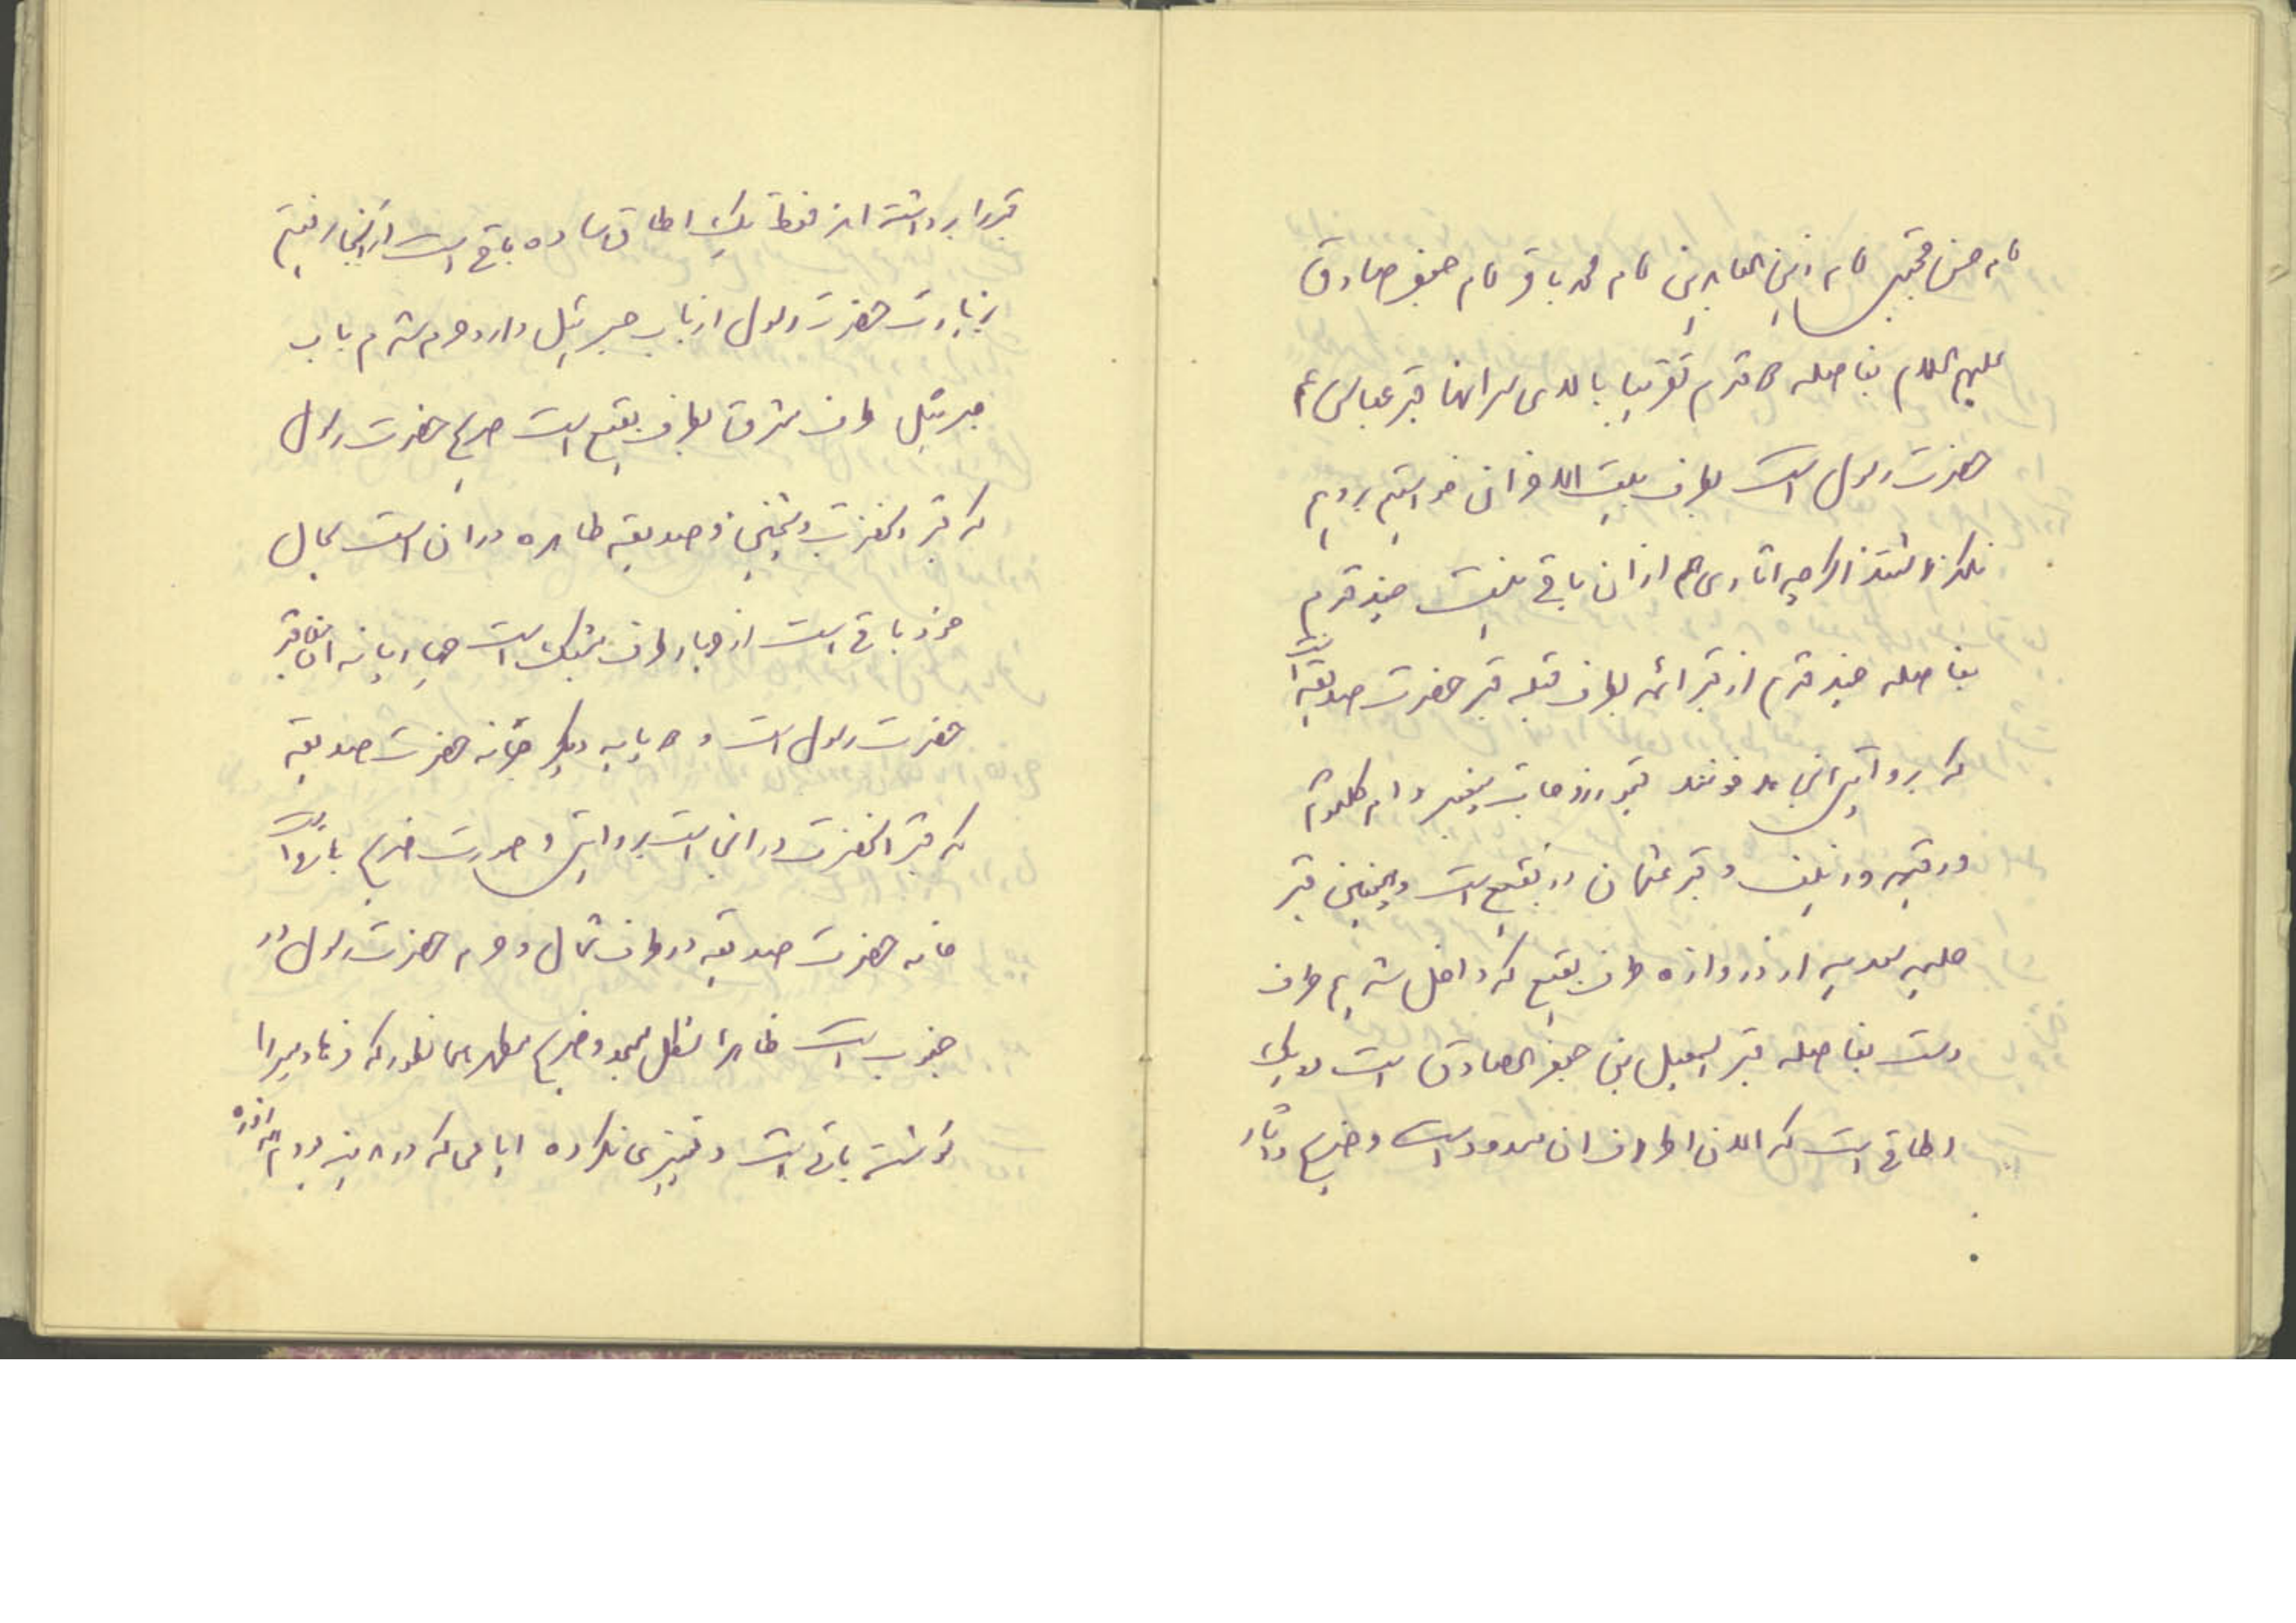 امام حسن مجتبی امام زین العابدین امام محمد باقر امام جعفر صادق
علیهم السلام بفاصله ۵ قدم تقریبا بالای سر انها قبر عباس عم
حضرت رسول است بطرف بیت الاحزان خواستیم برویم
نگذاشتند اگرچه اثاری هم از ان باقی نیست چند قدم
بفاصله چند قدم از قبر ائمه بطرف قبله قبر حضرت صدیقه است
که بروایتی انجا مدفونند قبور زوجات پیغمبر و ام کلثوم
ورقیه وزینب وقبر عثمان در بقیع است وهمچنین قبر
حلیمه سعدیه از دروازه طرف بقیع که داخل شدیم طرف
دست بفاصله قبر اسمعیل بن جعفر الصادق است در یک
اطاقی است که الان اطراف ان مسدود است و ضریح واثار
قبر را برداشته اند فقط یک اطاق ساده باقی است از انجا رفتیم
زیارت حضرت رسول از باب جبرئیل وارد حرم شدم باب
جبرئیل طرف شرق بطرف بقیع است ضریح حضرت رسول
که قبر انحضرت وشیخین وصدیقه طاهره در ان است بحال
خود باقی است از چهار طرف مشبک است چهار پایه ان بقا قبر
حضرت رسول است و ۵ پایه دیگر خانه حضرت صدیقه
که قبر انحضرت در انجا است بروایتی وصورت ضریح باز است
خانه حضرت صدیقه در طرف شمال وحرم حضرت رسول در
جنوب است ظاهرا شکل مسجد وضریح مطهر همانطور که فرهاد میرزا
نوشته باقی است وتغییری نکرده ایامی که در مدینه بودم